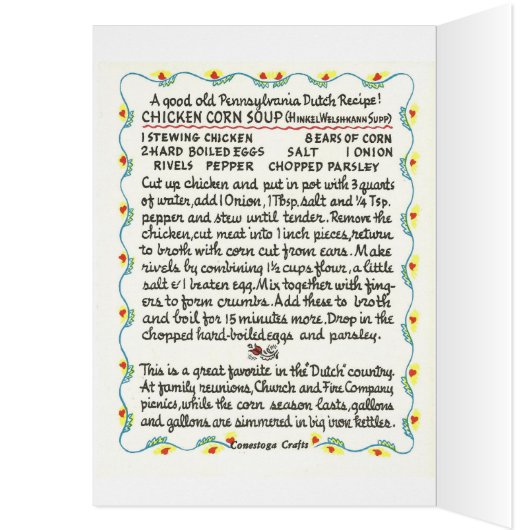 A good old Pennsylvania Dutch Recipe!
CHICKEN CORN SOUP (HINKEL WELSHKANN SUPP)
1 STEWING CHICKEN 8 EARS OF CORN
2 HARD BOILED EGGS SALT 1 ONION
RIVELS PEPPER CHOPPED PARSLEY
Cut up chicken and put in pot with 3 quarts
of water, add 1 Onion, 1 Tbsp. salt and 1/4 Tsp.
pepper and stew until tender. Remove the
chicken, cut meat into 1 inch pieces, return
to broth with corn cut from ears. Make
rivels by combining 1½ cups flour, a little
salt & 1 beaten egg. Mix together with fing-
ers to form crumbs. Add these to broth
and boil for 15 minutes more. Drop in the
chopped hard-boiled eggs and parsley.
This is a great favorite in the "Dutch" country.
At family reunions, Church and Fire Company
picnics, while the corn season lasts, gallons
and gallons are simmered in big iron kettles.
Conestoga Crafts